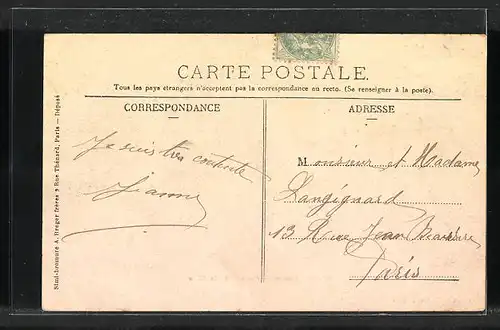 CARTE POSTALE.
Tous les pays étrangers n'acceptent pas la correspondance au recto. (Se renseigner à la poste).
CORRESPONDANCE
ADRESSE
Je suis très contente
Jeanne
Monsieur et Madame
Langignard
13 Rue Jean
Paris
Simi-bromure A. Breger frères 9 Rue Thénard, Paris — Déposé